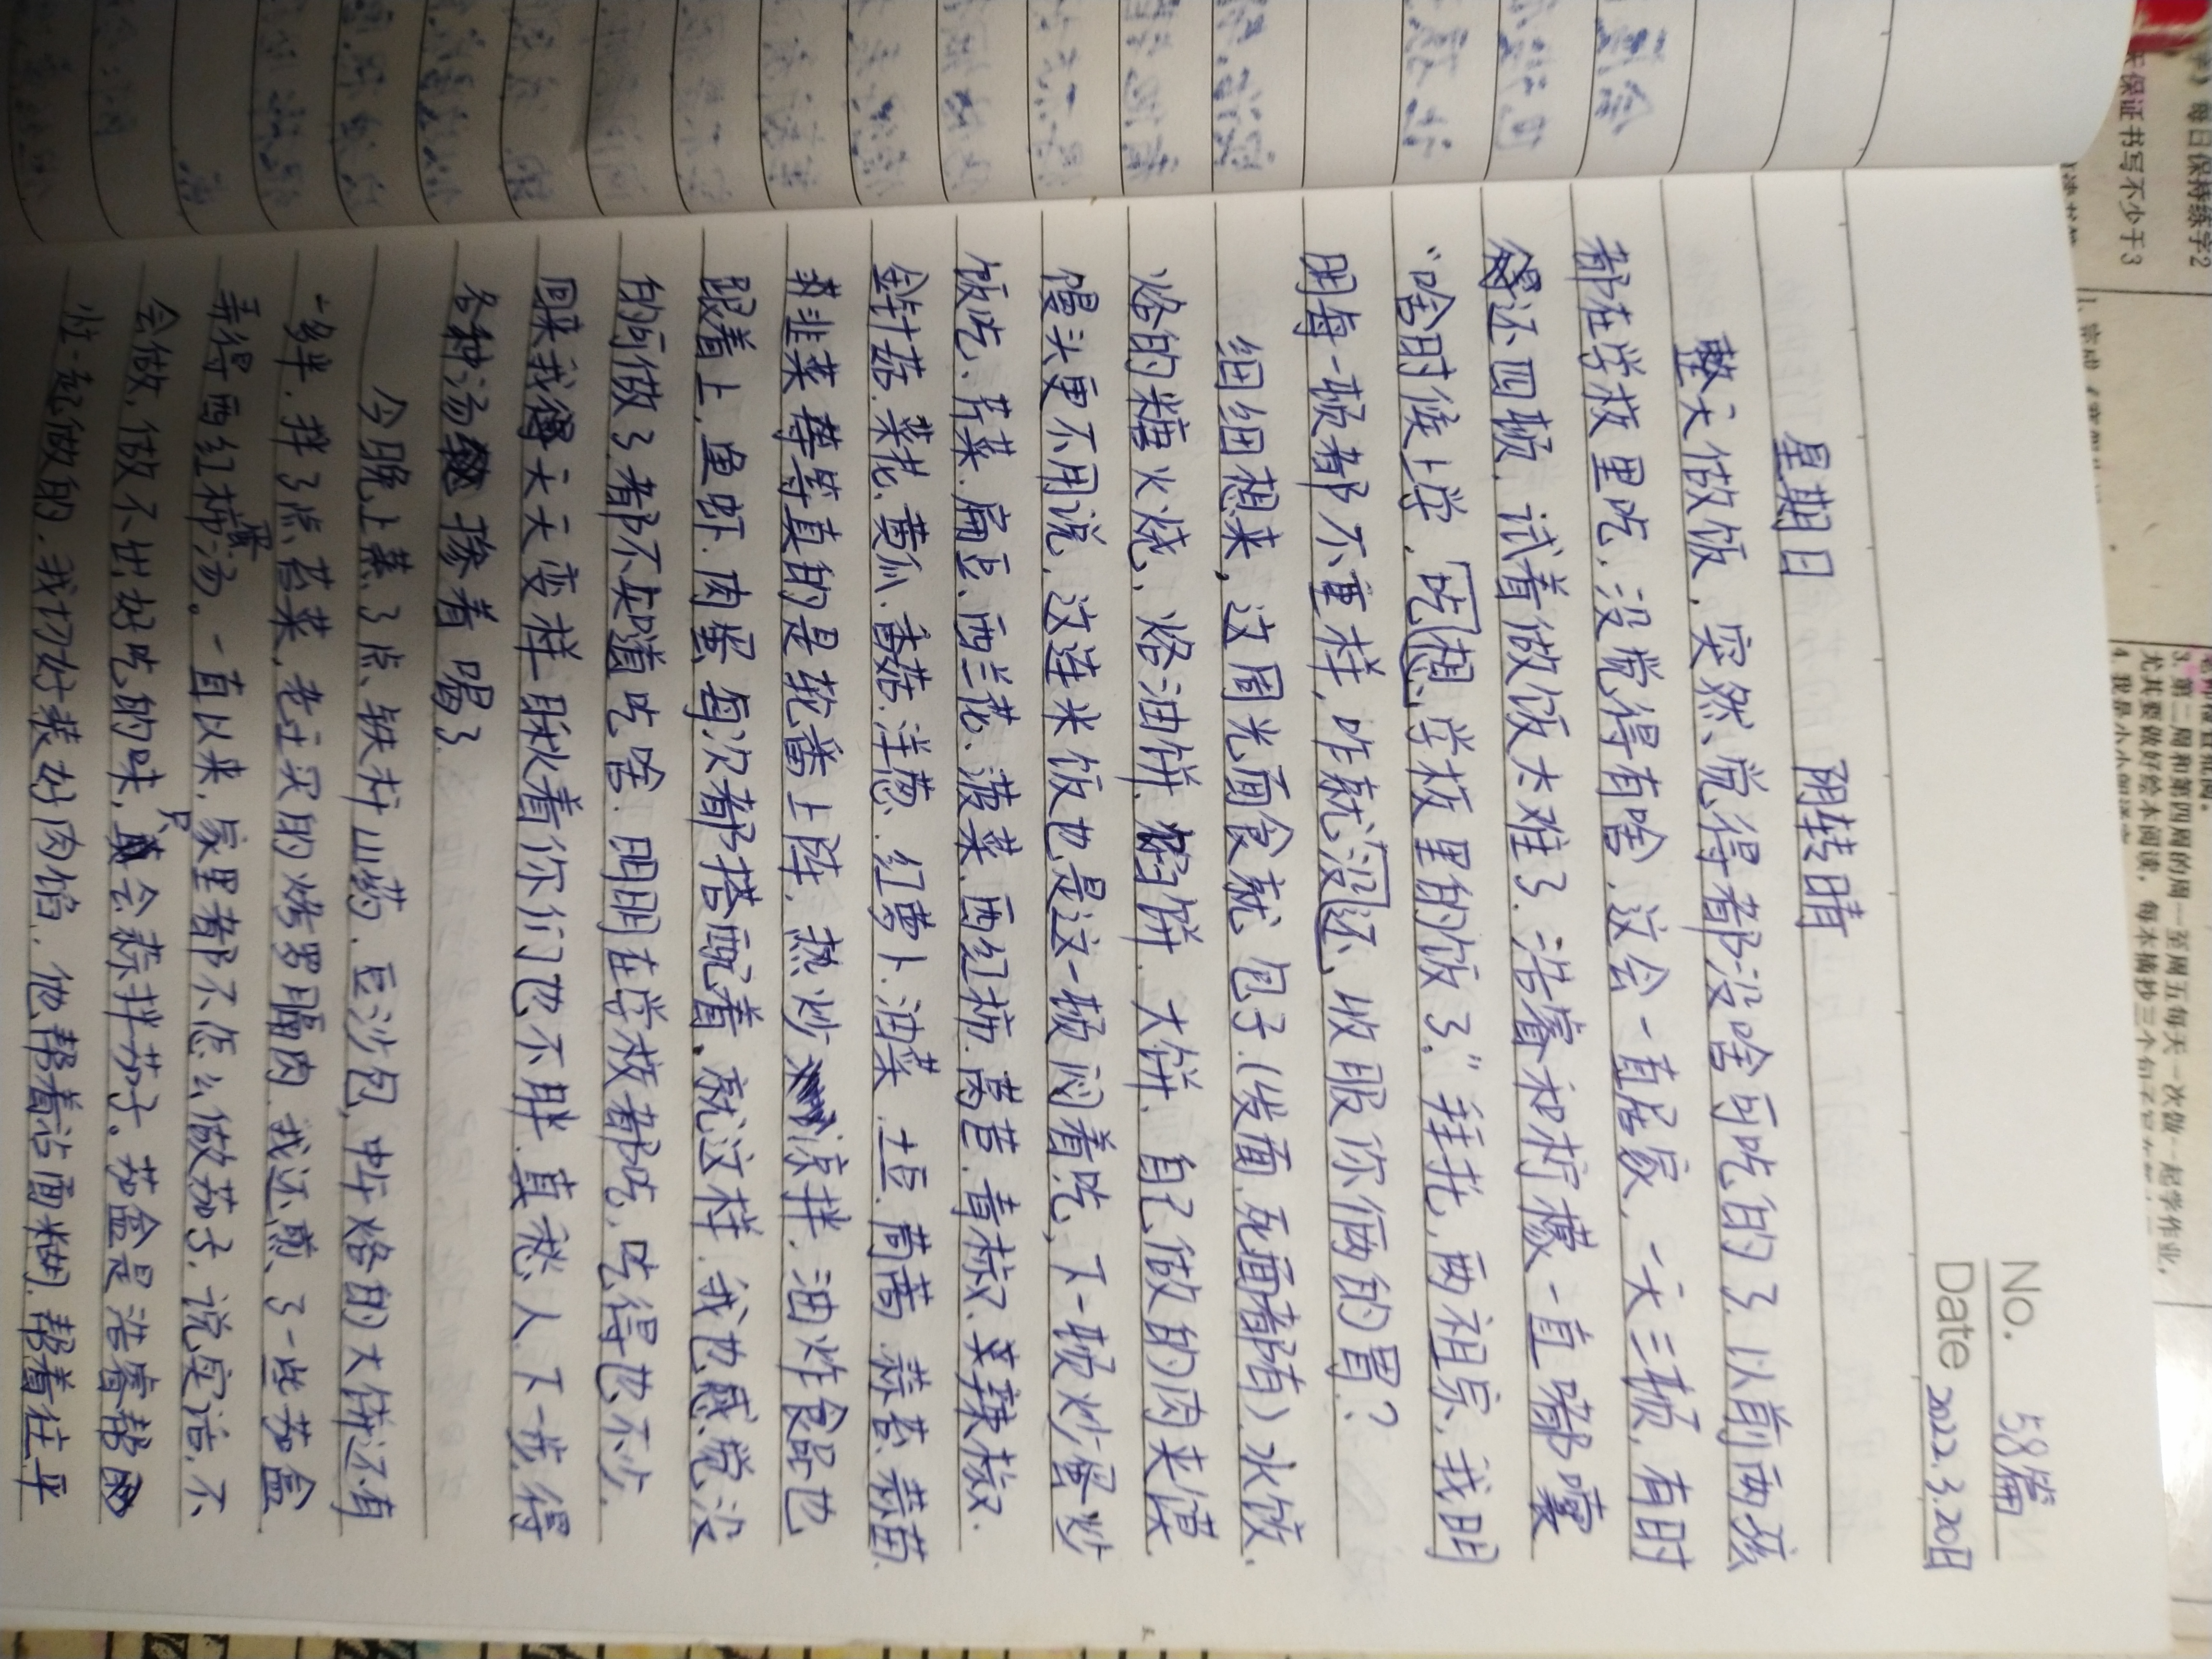 No. 58篇
Date 2022.3.20日
星期日 阴转晴
整天做饭，突然觉得都没啥可吃的了。以前两孩
都在学校里吃，没觉得有啥，这会一直居家，一天三顿，有时
还四顿，试着做饭太难了，浩睿和析檬一直嘟囔
“啥时候上学，吃想学校里的饭了。”拜托，两祖宗，我明
明每一顿都不重样，咋就没还收服你俩的胃？
细细想来，这周光面食就包子（发面、死面都有）、水饺、
烙的糖火烧、烙油饼、馅饼、大饼、自己做的肉夹馍、
馒头更不用说，这连米饭也是这一顿闷着吃，下一顿炒蛋炒
饭吃、芹菜、扁豆、西兰花、菠菜、西红柿、莴苣、青椒、尖辣椒、
金针菇、菜花、黄瓜、香菇、洋葱、红萝卜、油菜、土豆、茼蒿、蒜苔、蒜苗、
韭菜等等真的是轮番上阵，热炒、凉拌、油炸食品也
跟着上，鱼虾、肉蛋，每次都搭配着，就这样，我也感觉没
的可做了，都不知道吃啥，明明在学校都吃，吃得也不少，
回来我天天变样，瞅着你们也不胖，真愁人，下一步，得
各种汤换着喝了。
今晚上蒸了点铁杆山药、豆沙包，中午烙的大饼还有
一多半，拌了点苔菜，老庄买的烤羺膈肉，我还煎了一些茄盒，
弄得西红柿蛋汤。一直以来，家里都不怎么做茄子，说实话，不
会做，做不出好吃的味，只会蒜拌茄子。茄盒是浩睿帮
忙一起做的，我切好装好肉馅，他帮着沾面糊，帮着往平
No.
Date
每日保持练字2
保证书写不少于3
3. 第二周和第四周的周一至周五每天一次做一起学作业，
尤其要做好绘本阅读，每本摘抄三个句子
4. 我是小小